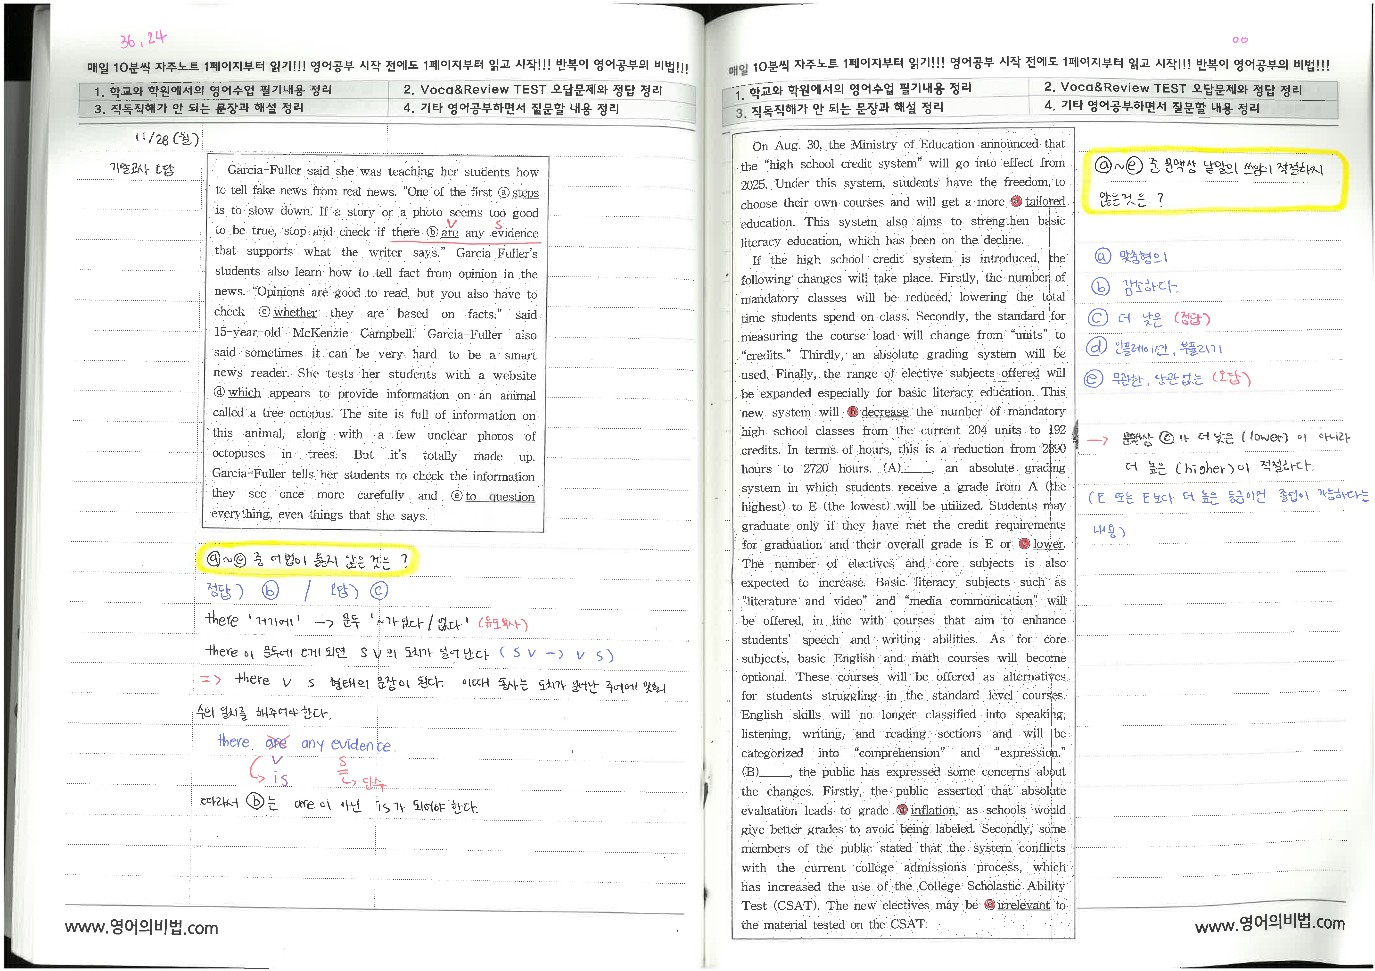 36, 24
매일 10분씩 자주노트 1페이지부터 읽기!!! 영어공부 시작 전에도 1페이지부터 읽고 시작!!! 반복이 영어공부의 비법!!!
1. 학교와 학원에서의 영어수업 필기내용 정리
2. Voca&Review TEST 오답문제와 정답 정리
3. 직독직해가 안 되는 문장과 해설 정리
4. 기타 영어공부하면서 질문할 내용 정리
11/28 (월)
기말고사 오답
Garcia-Fuller said she was teaching her students how
to tell fake news from real news. "One of the first ⓐ steps
is to slow down. If a story or a photo seems too good
to be true, stop and check if there ⓑ are any evidence
V S
that supports what the writer says." Garcia Fuller's
students also learn how to tell fact from opinion in the
news. "Opinions are good to read, but you also have to
check ⓒ whether they are based on facts," said
15-year-old McKenzie Campbell. Garcia-Fuller also
said sometimes it can be very hard to be a smart
news reader. She tests her students with a website
ⓓ which appears to provide information on an animal
called a tree octopus. The site is full of information on
this animal, along with a few unclear photos of
octopuses in trees. But it's totally made up.
Garcia-Fuller tells her students to check the information
they see once more carefully and ⓔ to question
everything, even things that she says.
ⓐ~ⓔ 중 어법이 옳지 않은 것은 ?
정답) ⓑ / 오답) ⓒ
there '거기에' → 문두 '~가 있다 / 없다' (유도부사)
there이 문두에 오게 되면 S V의 도치가 일어난다 ( S V → V S )
=> there V S 형태의 문장이 된다. 이때 동사는 도치가 일어난 주어에 맞춰
수의 일치를 해주어야 한다.
there are any evidence
V S
is 단수
따라서 ⓑ는 are이 아닌 is가 되어야 한다.
www.영어의비법.com
매일 10분씩 자주노트 1페이지부터 읽기!!! 영어공부 시작 전에도 1페이지부터 읽고 시작!!! 반복이 영어공부의 비법!!!
1. 학교와 학원에서의 영어수업 필기내용 정리
2. Voca&Review TEST 오답문제와 정답 정리
3. 직독직해가 안 되는 문장과 해설 정리
4. 기타 영어공부하면서 질문할 내용 정리
On Aug. 30, the Ministry of Education announced that
the "high school credit system" will go into effect from
2025. Under this system, students have the freedom to
choose their own courses and will get a more ⓐ tailored
education. This system also aims to strengthen basic
literacy education, which has been on the decline.
If the high school credit system is introduced, the
following changes will take place. Firstly, the number of
mandatory classes will be reduced, lowering the total
time students spend on class. Secondly, the standard for
measuring the course load will change from "units" to
"credits." Thirdly, an absolute grading system will be
used. Finally, the range of elective subjects offered will
be expanded especially for basic literacy education. This
new system will ⓑ decrease the number of mandatory
high school classes from the current 204 units to 192
credits. In terms of hours, this is a reduction from 2890
hours to 2720 hours. (A)____, an absolute grading
system in which students receive a grade from A (the
highest) to E (the lowest) will be utilized. Students may
graduate only if they have met the credit requirements
for graduation and their overall grade is E or ⓒ lower.
The number of electives and core subjects is also
expected to increase. Basic literacy subjects such as
"literature and video" and "media communication" will
be offered, in line with courses that aim to enhance
students' speech and writing abilities. As for core
subjects, basic English and math courses will become
optional. These courses will be offered as alternatives
for students struggling in the standard level courses.
English skills will no longer classified into speaking,
listening, writing, and reading sections and will be
categorized into "comprehension" and "expression."
(B)____, the public has expressed some concerns about
the changes. Firstly, the public asserted that absolute
evaluation leads to grade ⓓ inflation, as schools would
give better grades to avoid being labeled. Secondly, some
members of the public stated that the system conflicts
with the current college admissions process, which
has increased the use of the College Scholastic Ability
Test (CSAT). The new electives may be ⓔ irrelevant to
the material tested on the CSAT.
ⓐ~ⓔ 중 문맥상 낱말의 쓰임이 적절하지
않은 것은 ?
ⓐ 맞춤형의
ⓑ 감소하다.
ⓒ 더 낮은 (정답)
ⓓ 인플레이션, 부풀리기
ⓔ 무관한, 상관없는 (오답)
→ 문맥상 ⓒ가 더 낮은 (lower) 이 아니라
더 높은 (higher)이 적절하다.
(E 또는 E보다 더 높은 등급이면 졸업이 가능하다는
내용)
www.영어의비법.com